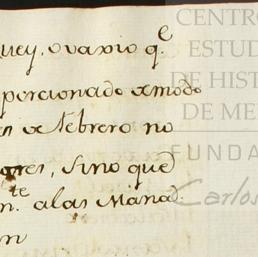 uey, o vario q.e
porcionado de modo
de febrero no
ores, sino que
te
n. a las Mañad.
n
CENTRO
ESTUD
DE HIST
DE ME
FUNDA
Carlos